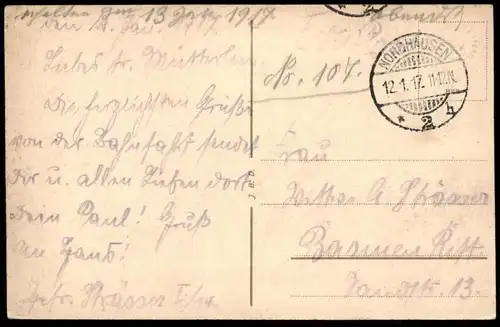 erhalten am 13 Jan. 1917 abends
den 12. Jan. 1917
Liebes Mütterlein
Die herzlichsten Grüße
von der Bahnfahrt sendet
Dir u. allen Lieben dort
Dein Paul! Gruß
an Hans!
Gefr. Strässer
No. 107.
NORDHAUSEN
12.1.17. 11-12.N.
* 2 h
J. & D.
Frau
Witwe A Strässer
Barmen Ritt.
13.